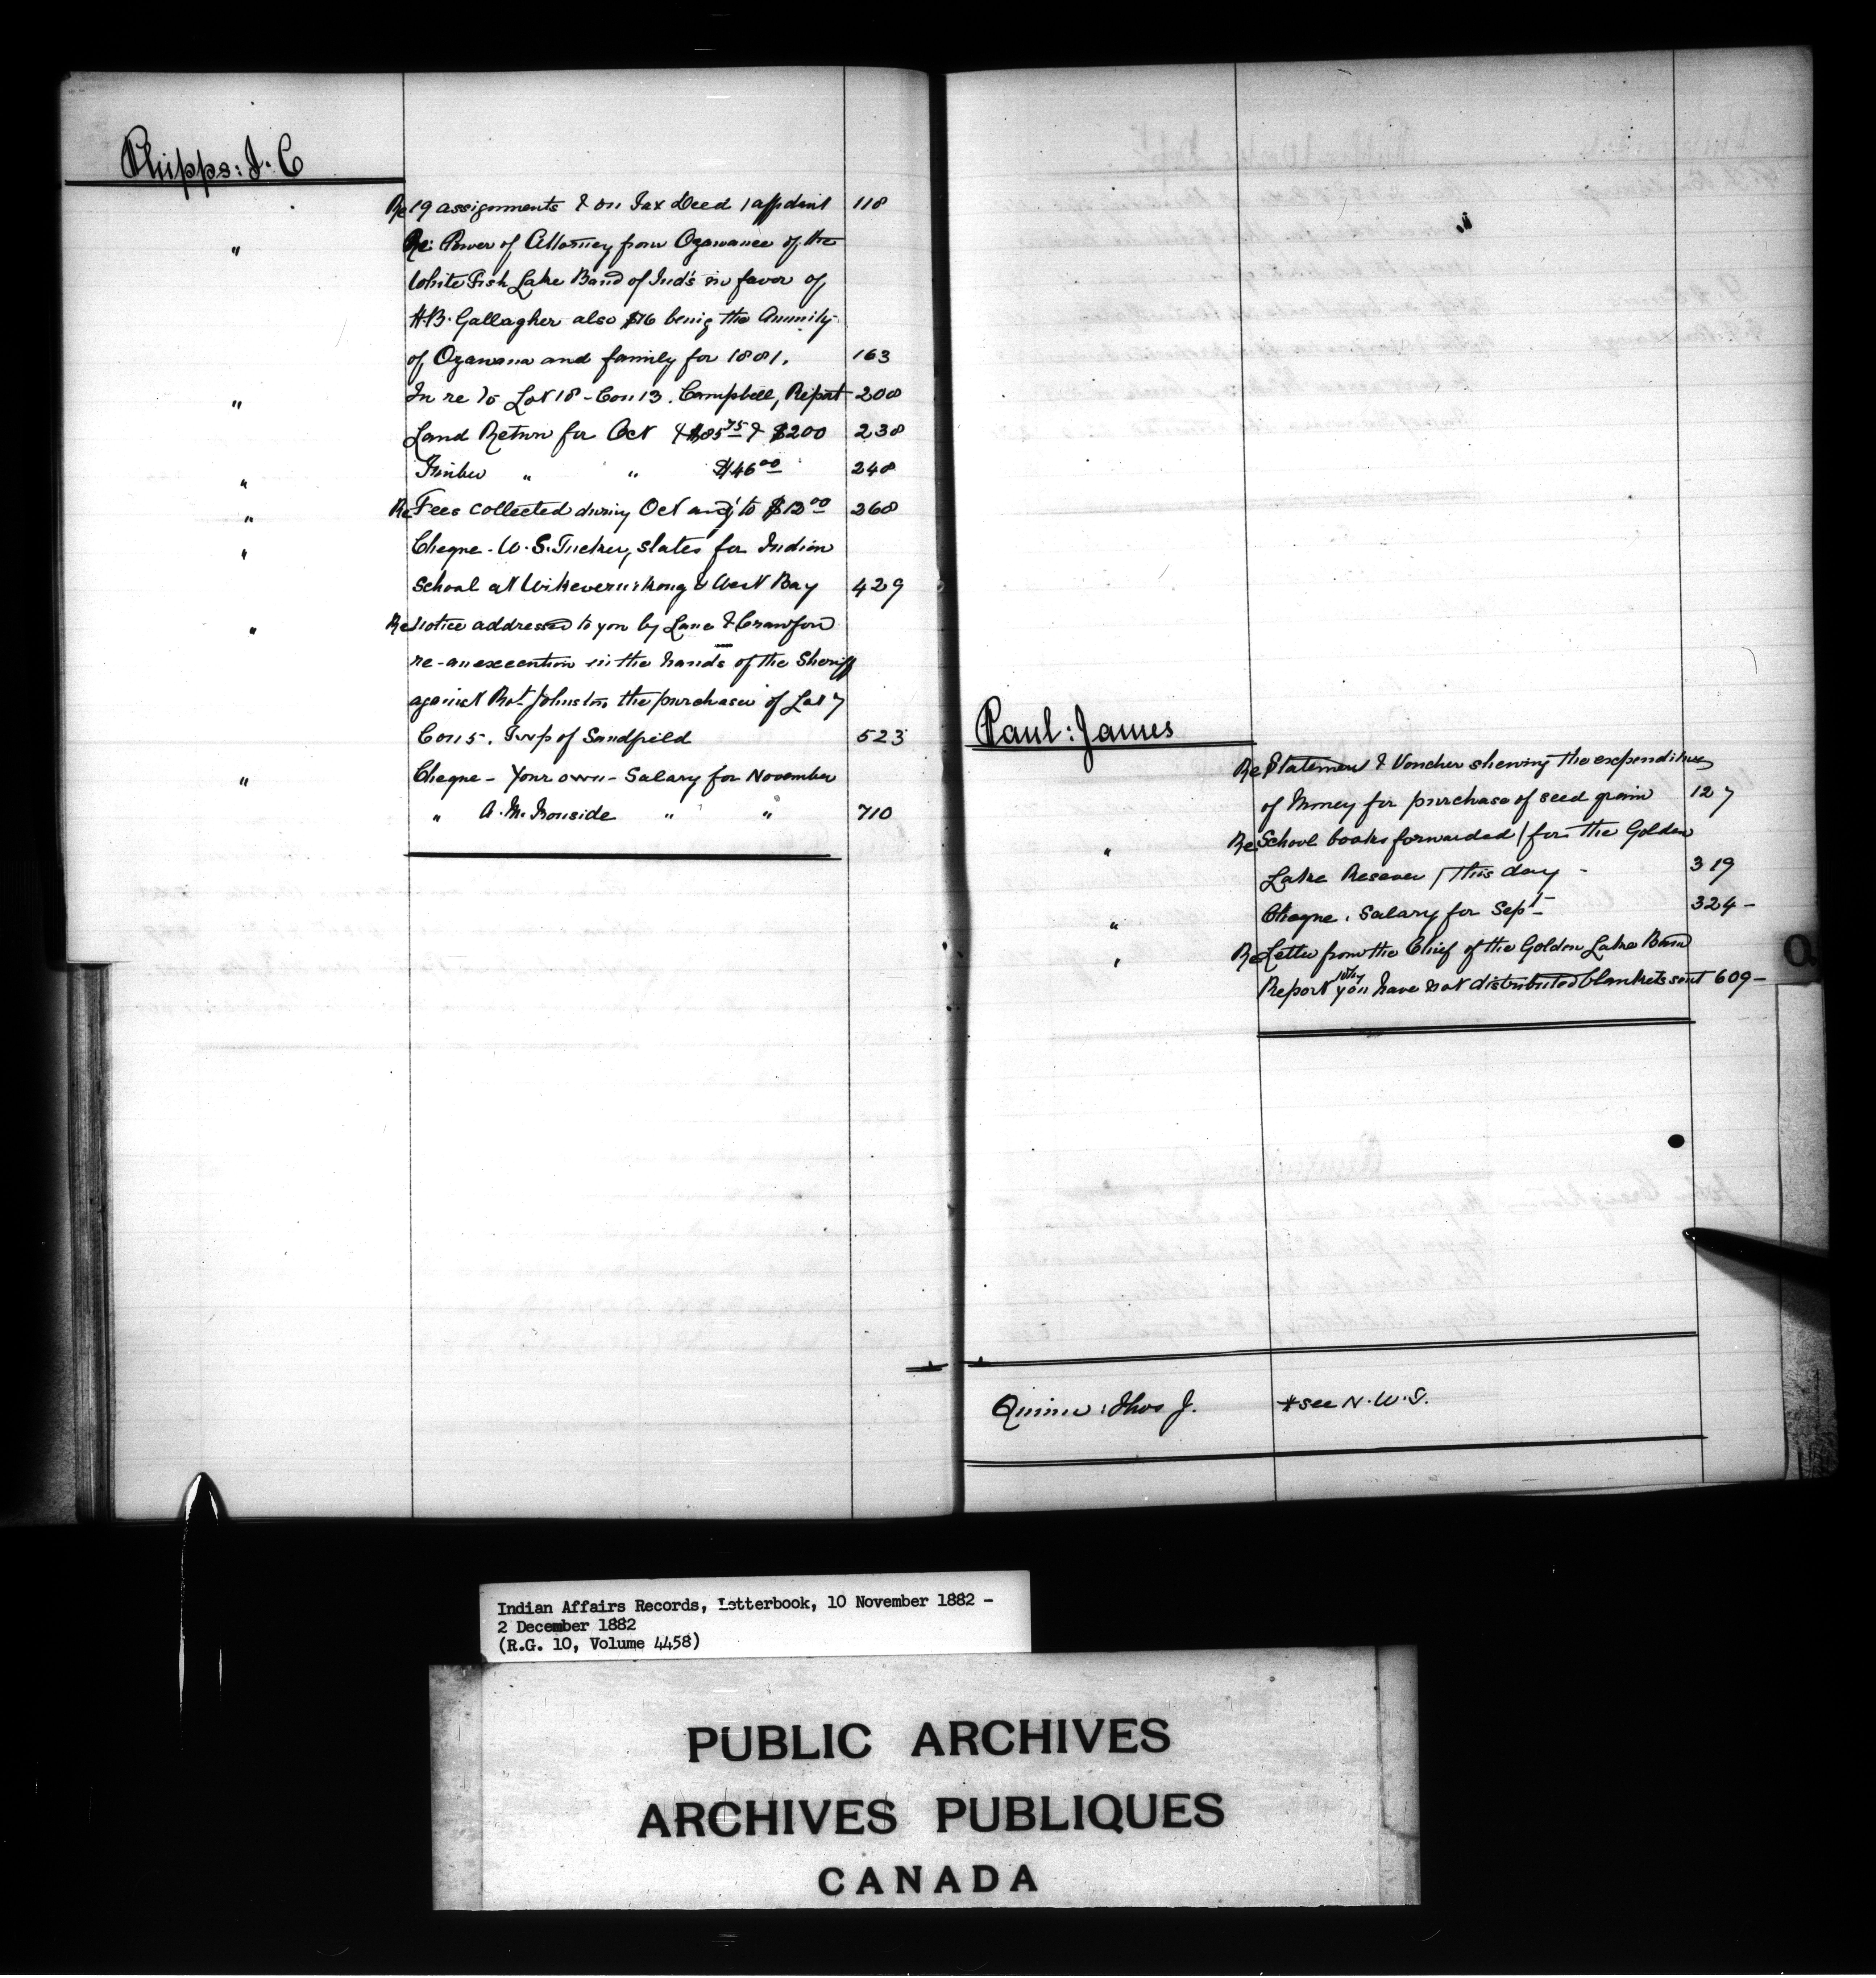 Phipps: J. C
Re 19 assignments & on Tax Deed 1 affidavit 118
" Re: Power of Attorney from Ozawanee of the
White Fish Lake Band of Ind's in favor of
H.B. Gallagher also $76 being the Annuity
of Ozawana and family for 1881. 163
" In re to Lot 18 - Con 13. Campbell, Report 208
Land Return for Oct & $85 75 & $200 238
" Timber " " $46 00 248
" Re Fees collected during Oct am'g to $12 00 268
" Cheque - W. S. Tucker, slates for Indian
School at Wikevemikong & West Bay 429
" Re Notice addressed to you by Lane & Crawford
re - an execution in the hands of the Sheriff
against Rot Johnston the purchaser of Lot 7
Con 5. Twp of Sandfield 523
" Cheque - Your own - Salary for November
" A. M. Ironside " " 710
Paul: James
Re Statement & Voucher shewing the expenditure
of Money for purchase of seed grain 127
" Re School books forwarded / for the Golden
Lake Reserve / this day - 319
" Cheque. Salary for Sept 324 -
" Re Letter from the Chief of the Golden Lake Band
Report why you have not distributed blankets sent 609 -
Q
Quinn: Thos J. * see N. W. T.
Indian Affairs Records, Letterbook, 10 November 1882 -
2 December 1882
(R.G. 10, Volume 4458)
PUBLIC ARCHIVES
ARCHIVES PUBLIQUES
CANADA